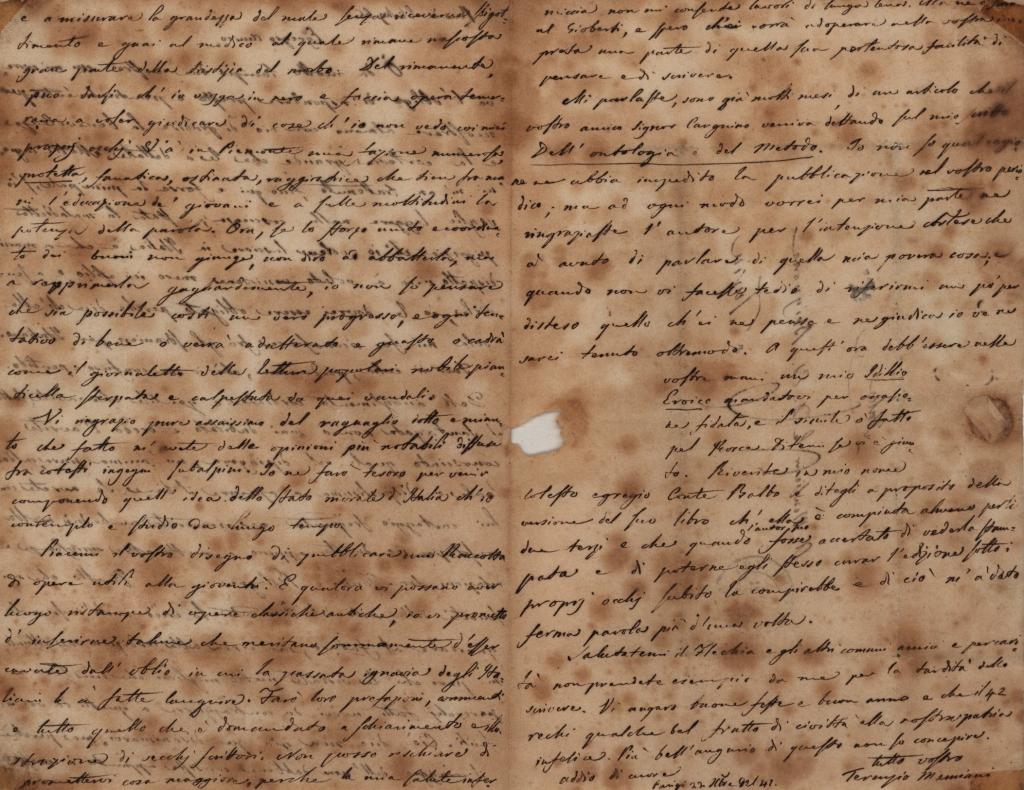 e a misurare la grandezza del male senza riceverne sbigot-
timento e guai al medico al quale rimane nascosta
gran parte della tristizia del morbo. Del rimanente,
può darsi ch' io vegga in nero e faccia opera teme-
raria a voler giudicare di cosa ch' io non vedo coi miei
proprj occhi. V' à in Piemonte una fazione numerosa
protetta, fanatica, ostinata, raggiratrice che tien fra ma
ni l'educazione de' giovani e a sulle moltitudini la
potenza della parola. Ora, se lo sforzo unito e coordina
to dei buoni non giunge, non dico ad abbatterla, ma
a rapprimerla gagliardamente, io non so pensare
che sia possibile costì un vero progresso, e ogni ten-
tativo di bene o verrà adulterato e guasto o cadrà
come il giornaletto delle letture popolari nobile pian-
ticella sterpata e calpestata da quei vandali.
Vi ringrazio pure assaissimo del ragguaglio dotto e minu
to che fatto m' avete delle opinioni più notabili diffuse
fra cotesti ingegni subalpini. Io ne farò tesoro per venir
componendo quell' idea dello stato morale d'Italia ch' io
contemplo e studio da lungo tempo.
Piacemi il vostro disegno di pubblicare una Raccolta
di opere utili alla gioventù. E qualora vi possano aver
luogo ristampe di operette classiche antiche, io vi prometto
d' inserirne talune che meritano sommamente d'esser
cavate dall' oblio in cui la passata ignavia degli Ita-
liani le à fatte languire. Farò loro prefazioni, commenti
e tutto quello che è domandato a schiarimento e illu
strazione di vecchi scrittori. Non posso rischiare di
promettervi cosa maggiore, perchè la mia salute infer
miccia non mi consente lavori di lunga lena.
al Gioberti, e spero ch'ei vorrà adoperare nella vostra im-
presa una parte di quella sua portentosa facilità di
pensare e di scrivere.
Mi parlaste, sono già molti mesi di un articolo che il
vostro amico Signor Cargnino veniva dettando sul mio
Dell' ontologia e del Metodo. Io non so qual cagio
ne ne abbia impedito la pubblicazione nel vostro perio
dico; ma ad ogni modo vorrei per mia parte ne
ringraziaste l' autore per l' intenzione cortese che
à avuto di parlare di quella mia povera cosa; e
quando non vi facesse tedio di riferirmi un pò per
disteso quello ch' ei ne pensa e ne giudica io ve ne
sarei tenuto oltremodo. A quest' ora debb' essere nelle
vostre mani un mio Idillio
Eroico mandatovi per occasio-
ne fidata, e il simile ò fatto
pel Rocca
to. Riverite in mio nome
cotesto egregio Conte Balbo e ditegli a proposito della
versione del suo libro ch' ella è compiuta almeno per i
due terzi e che quando l'autore fosse accertato di vederla stam-
pata e di poterne egli stesso curar l'edizione sotto i
proprj occhj subito la compirebbe e di ciò m' à dato
ferma parola più d'una volta.
Salutatemi il Flechia e gli altri comuni amici e per cari
tà non prendete esempio da me per la tardità dello
scrivere. Vi auguro buone feste e buon anno e che il 42
rechi qualche bel frutto di civiltà alla nostra patria
infelice. Più bell' augurio di questo non so concepire.
addio di cuore tutto vostro
Parigi 22 Xbre del 41. Terenzio Mamiani